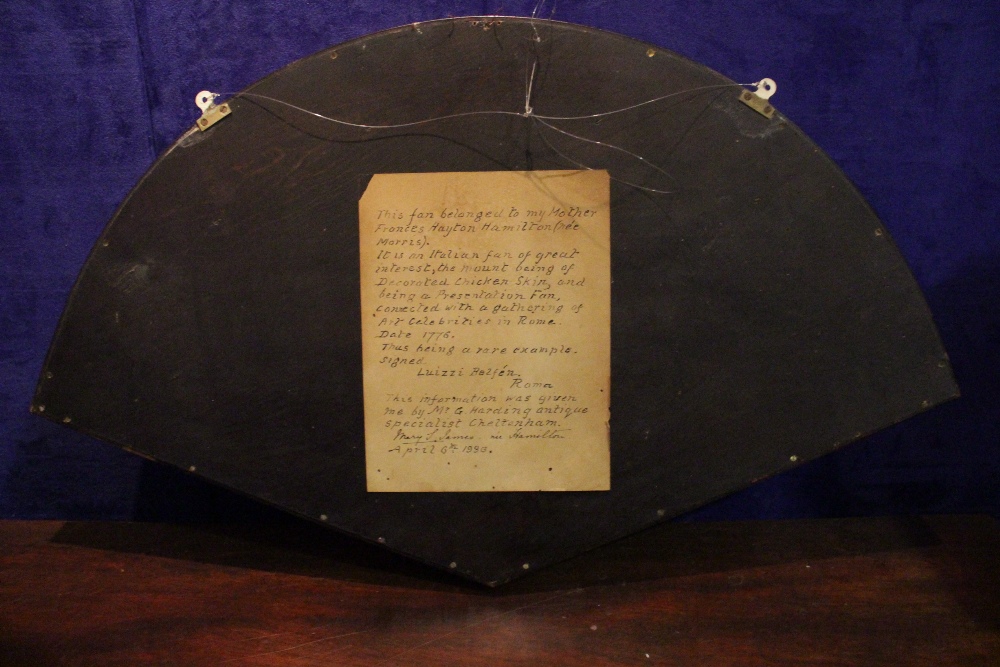 This fan belonged to my Mother
Frances Hayton Hamilton (née
Morris).
It is an Italian fan of great
interest, the mount being of
Decorated Chicken Skin, and
being a Presentation Fan,
connected with a gathering of
Art Celebrities in Rome.
Date 1776.
Thus being a rare example.
signed
Luizzi
Roma
This information was given
me by Mr G. Harding antique
specialist Cheltenham.
Mary S. James née Hamilton
April 6th